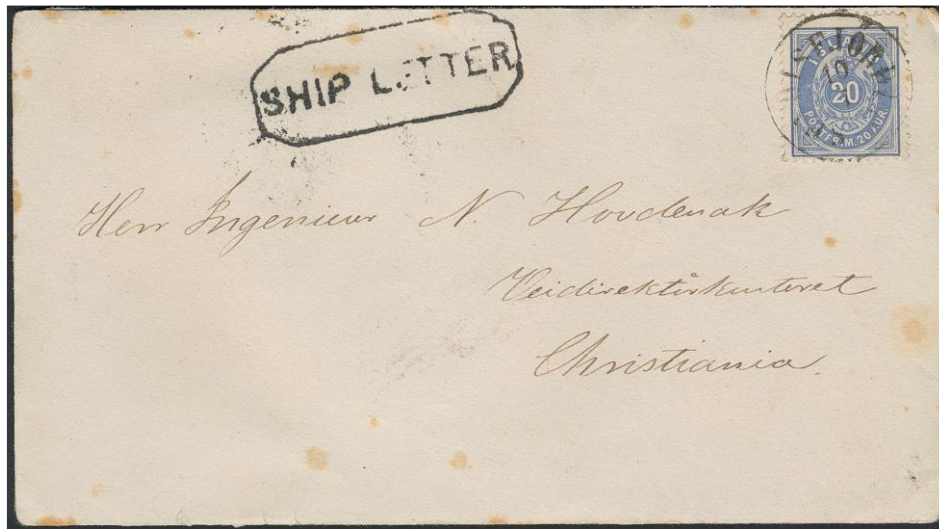 SHIP LETTER
ISLAND
20
POSTFRIM. 20 AUR
10
Herr Ingenieur N. Hovdenak
Veidirektörkontoret
Christiania.